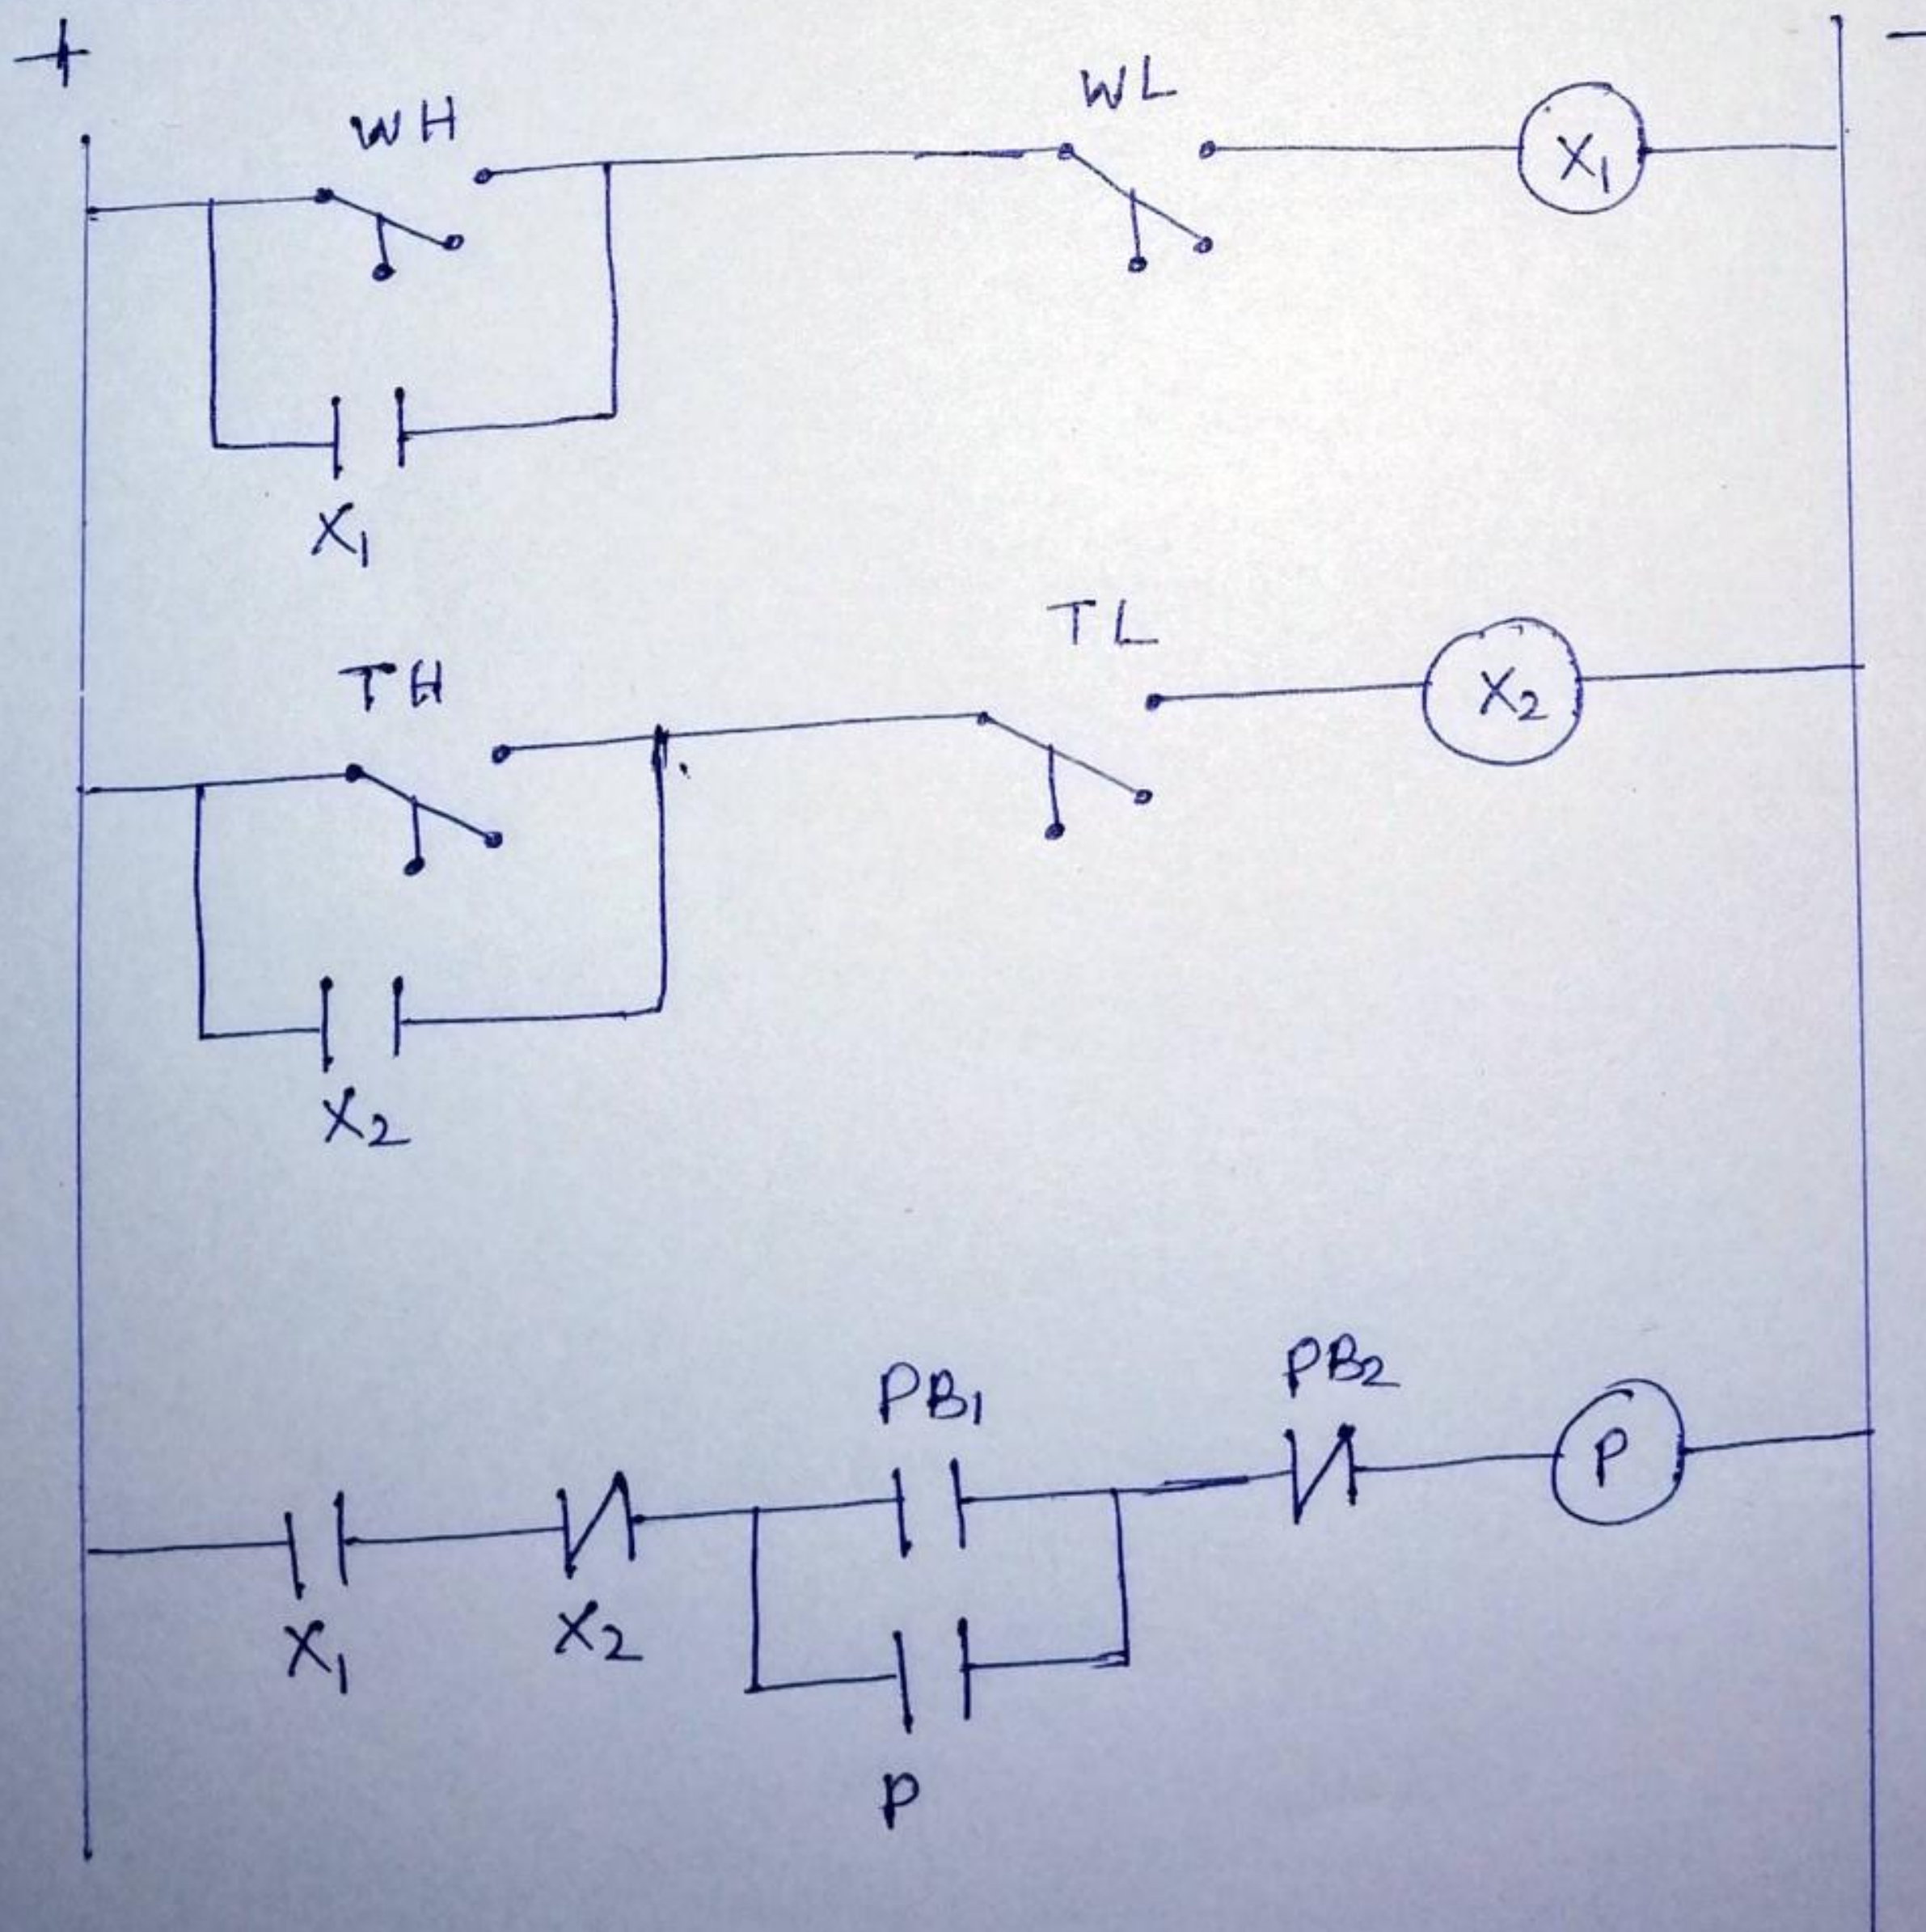 + -
WH WL
X1
X1
TH TL
X2
X2
PB1 PB2
P
X1 X2
P